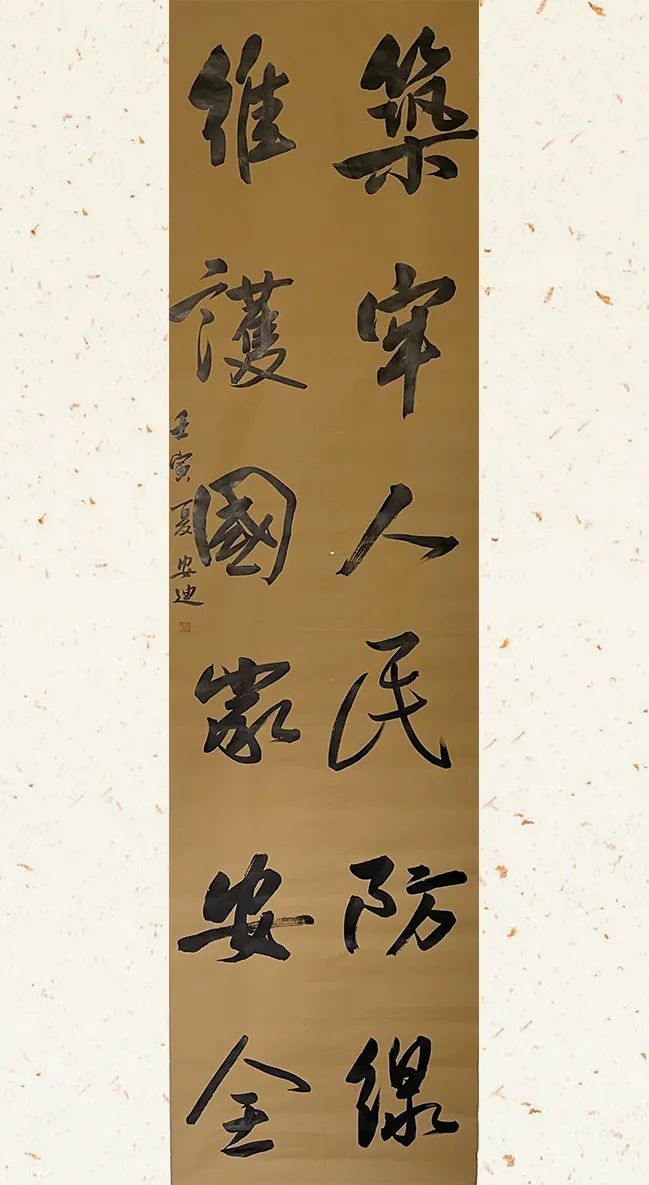 築牢人民防線
維護國家安全
壬寅夏安迪